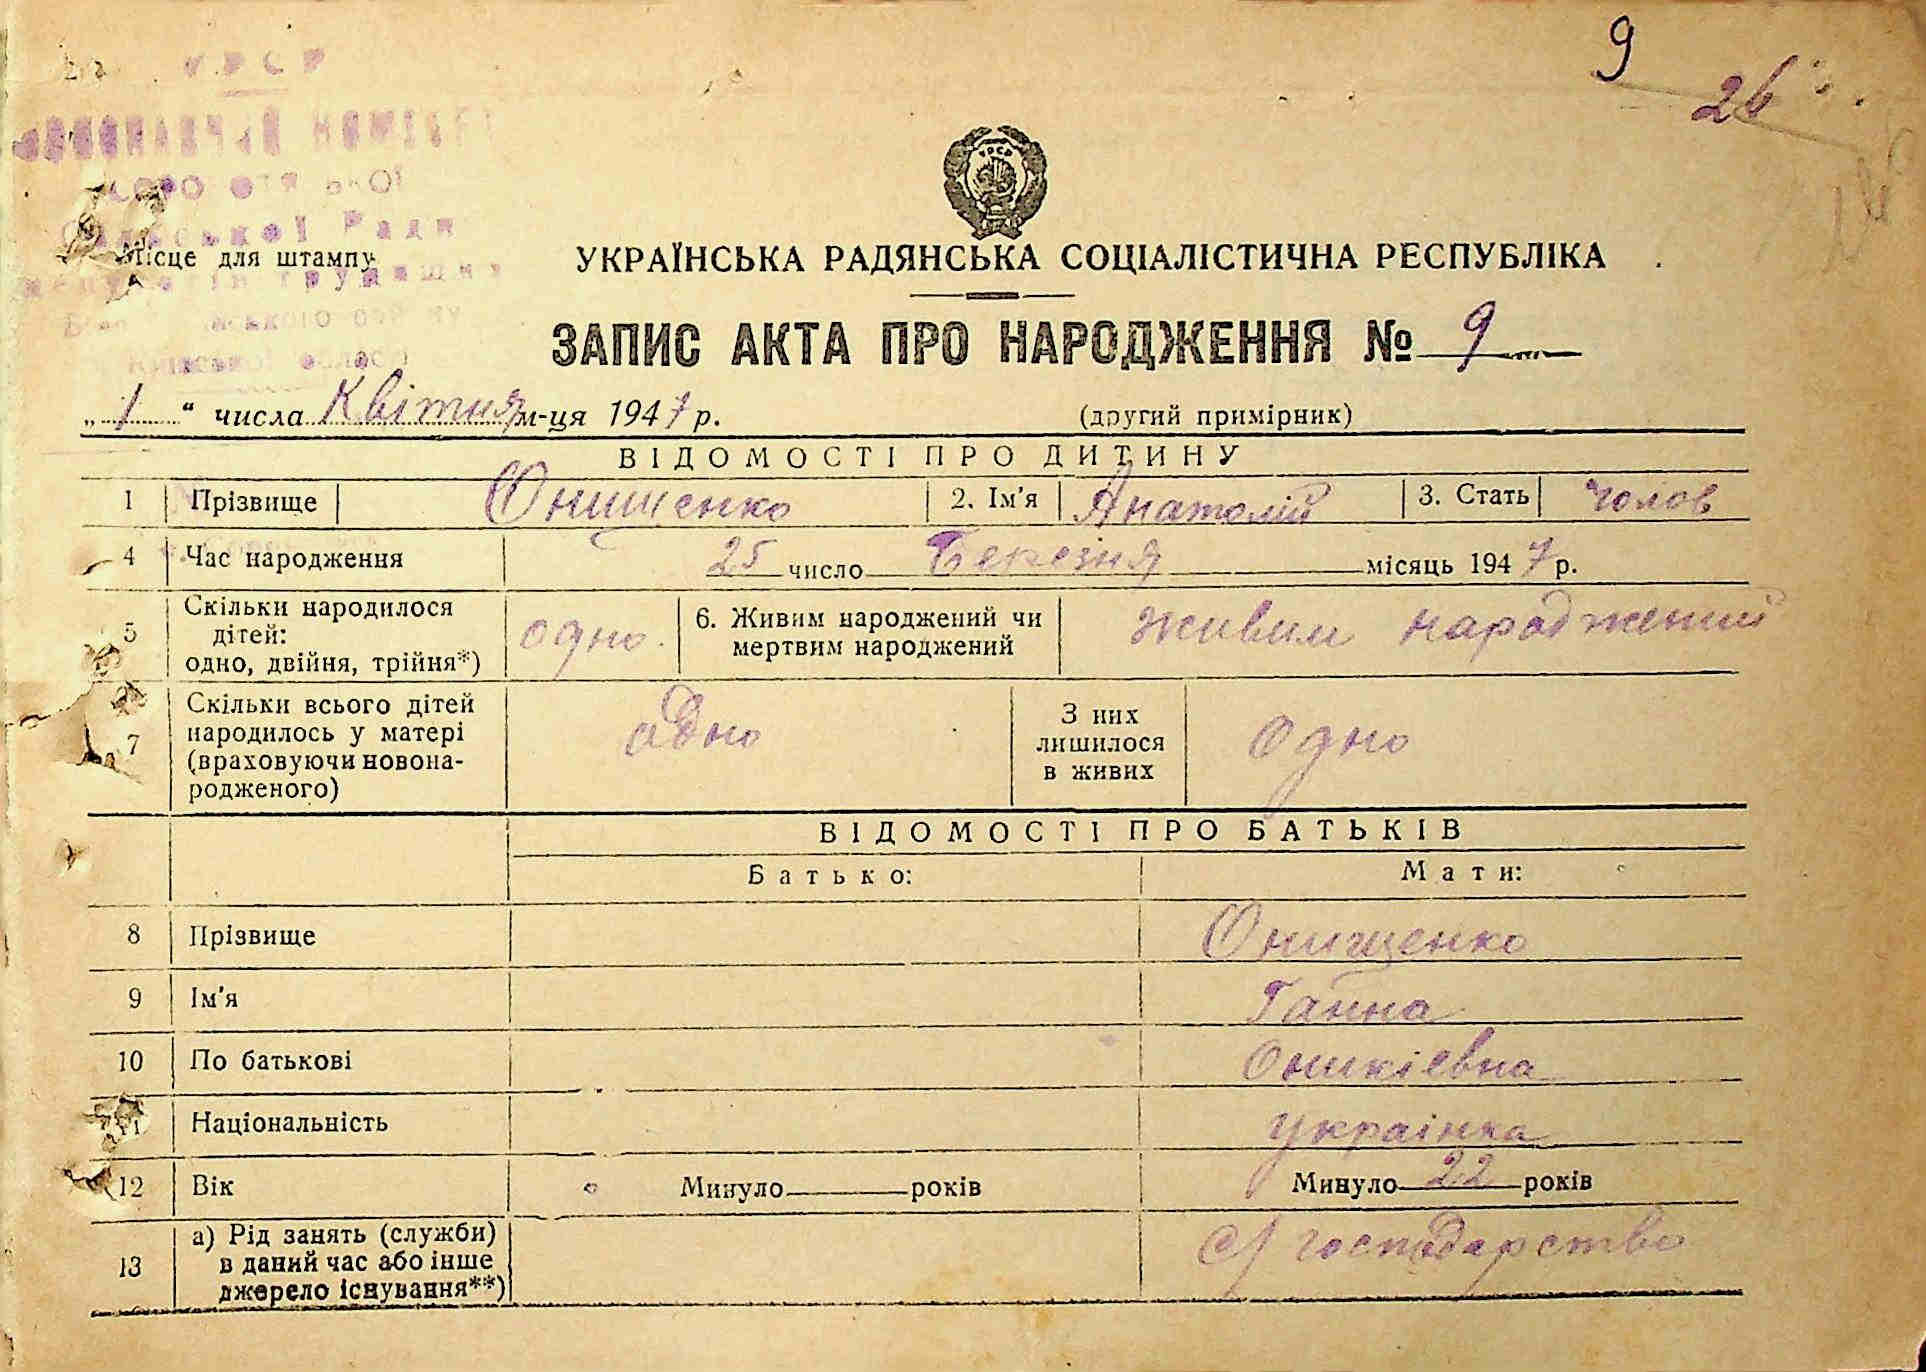 9
26
УРСР
Ради
Київської
Місце для штампу
УРСР
УКРАЇНСЬКА РАДЯНСЬКА СОЦІАЛІСТИЧНА РЕСПУБЛІКА
ЗАПИС АКТА ПРО НАРОДЖЕННЯ № 9
„ 1 “ числа Квітня м-ця 1947 р. (другий примірник)
ВІДОМОСТІ ПРО ДИТИНУ
1 Прізвище Онищенко 2. Ім'я Анатолій 3. Стать чолов
4 Час народження 25 число Березня місяць 1947 р.
5 Скільки народилося дітей: одно, двійня, трійня*) одно. 6. Живим народжений чи мертвим народжений живим народжений
7 Скільки всього дітей народилось у матері (враховуючи новона-родженого) одно З них лишилося в живих одно
ВІДОМОСТІ ПРО БАТЬКІВ
Батько: Мати:
8 Прізвище Онищенко
9 Ім'я Ганна
10 По батькові Оникіевна
11 Національність українка
12 Вік Минуло років Минуло 22 років
13 а) Рід занять (служби) в даний час або інше джерело існування**) с/господарство